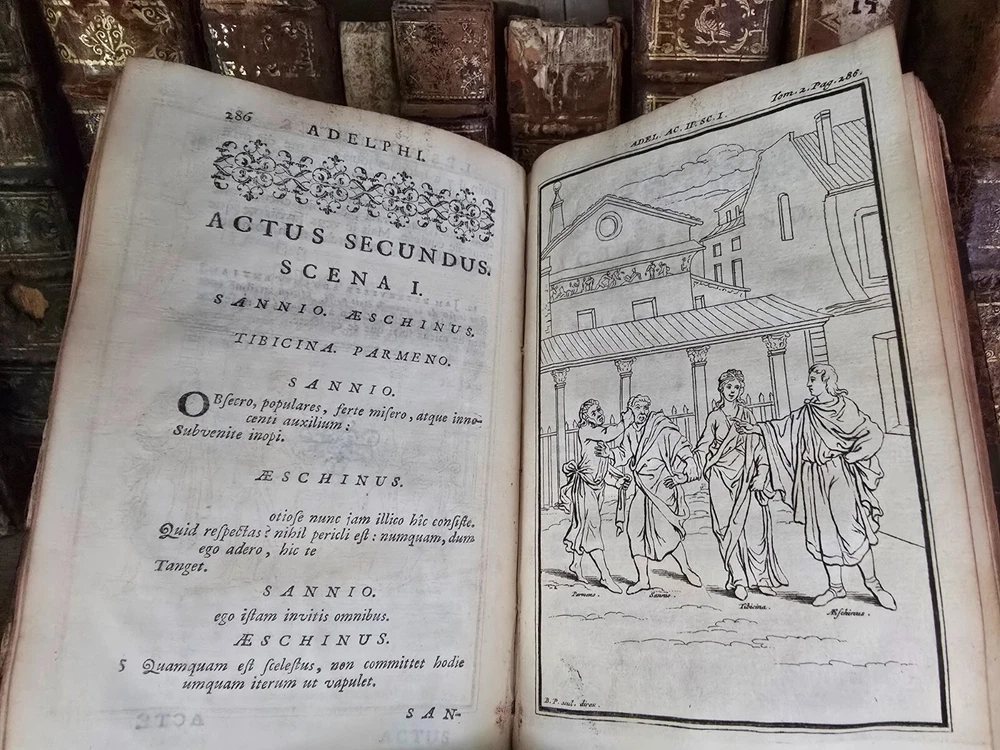 286
ADELPHI.
ACTUS SECUNDUS.
SCENA I.
SANNIO. ÆSCHINUS.
TIBICINA. PARMENO.
SANNIO.
OBſecro, populares, ferte miſero, atque inno-
centi auxilium:
Subvenite inopi.
ÆSCHINUS.
otioſe nunc jam illico hîc conſiſte.
Quid reſpectas? nihil pericli eſt: numquam, dum
ego adero, hic te
Tanget.
SANNIO.
ego iſtam invitis omnibus.
ÆSCHINUS.
5 Quamquam eſt ſceleſtus, non committet hodie
umquam iterum ut vapulet.
SAN-
ACTE
ACTUS
17
ADEL. AC. II. SC. I.
Tom. 2. Pag. 286.
Parmeno.
Sannio.
Tibicina.
Æſchinus.
B. P. scul. direx.